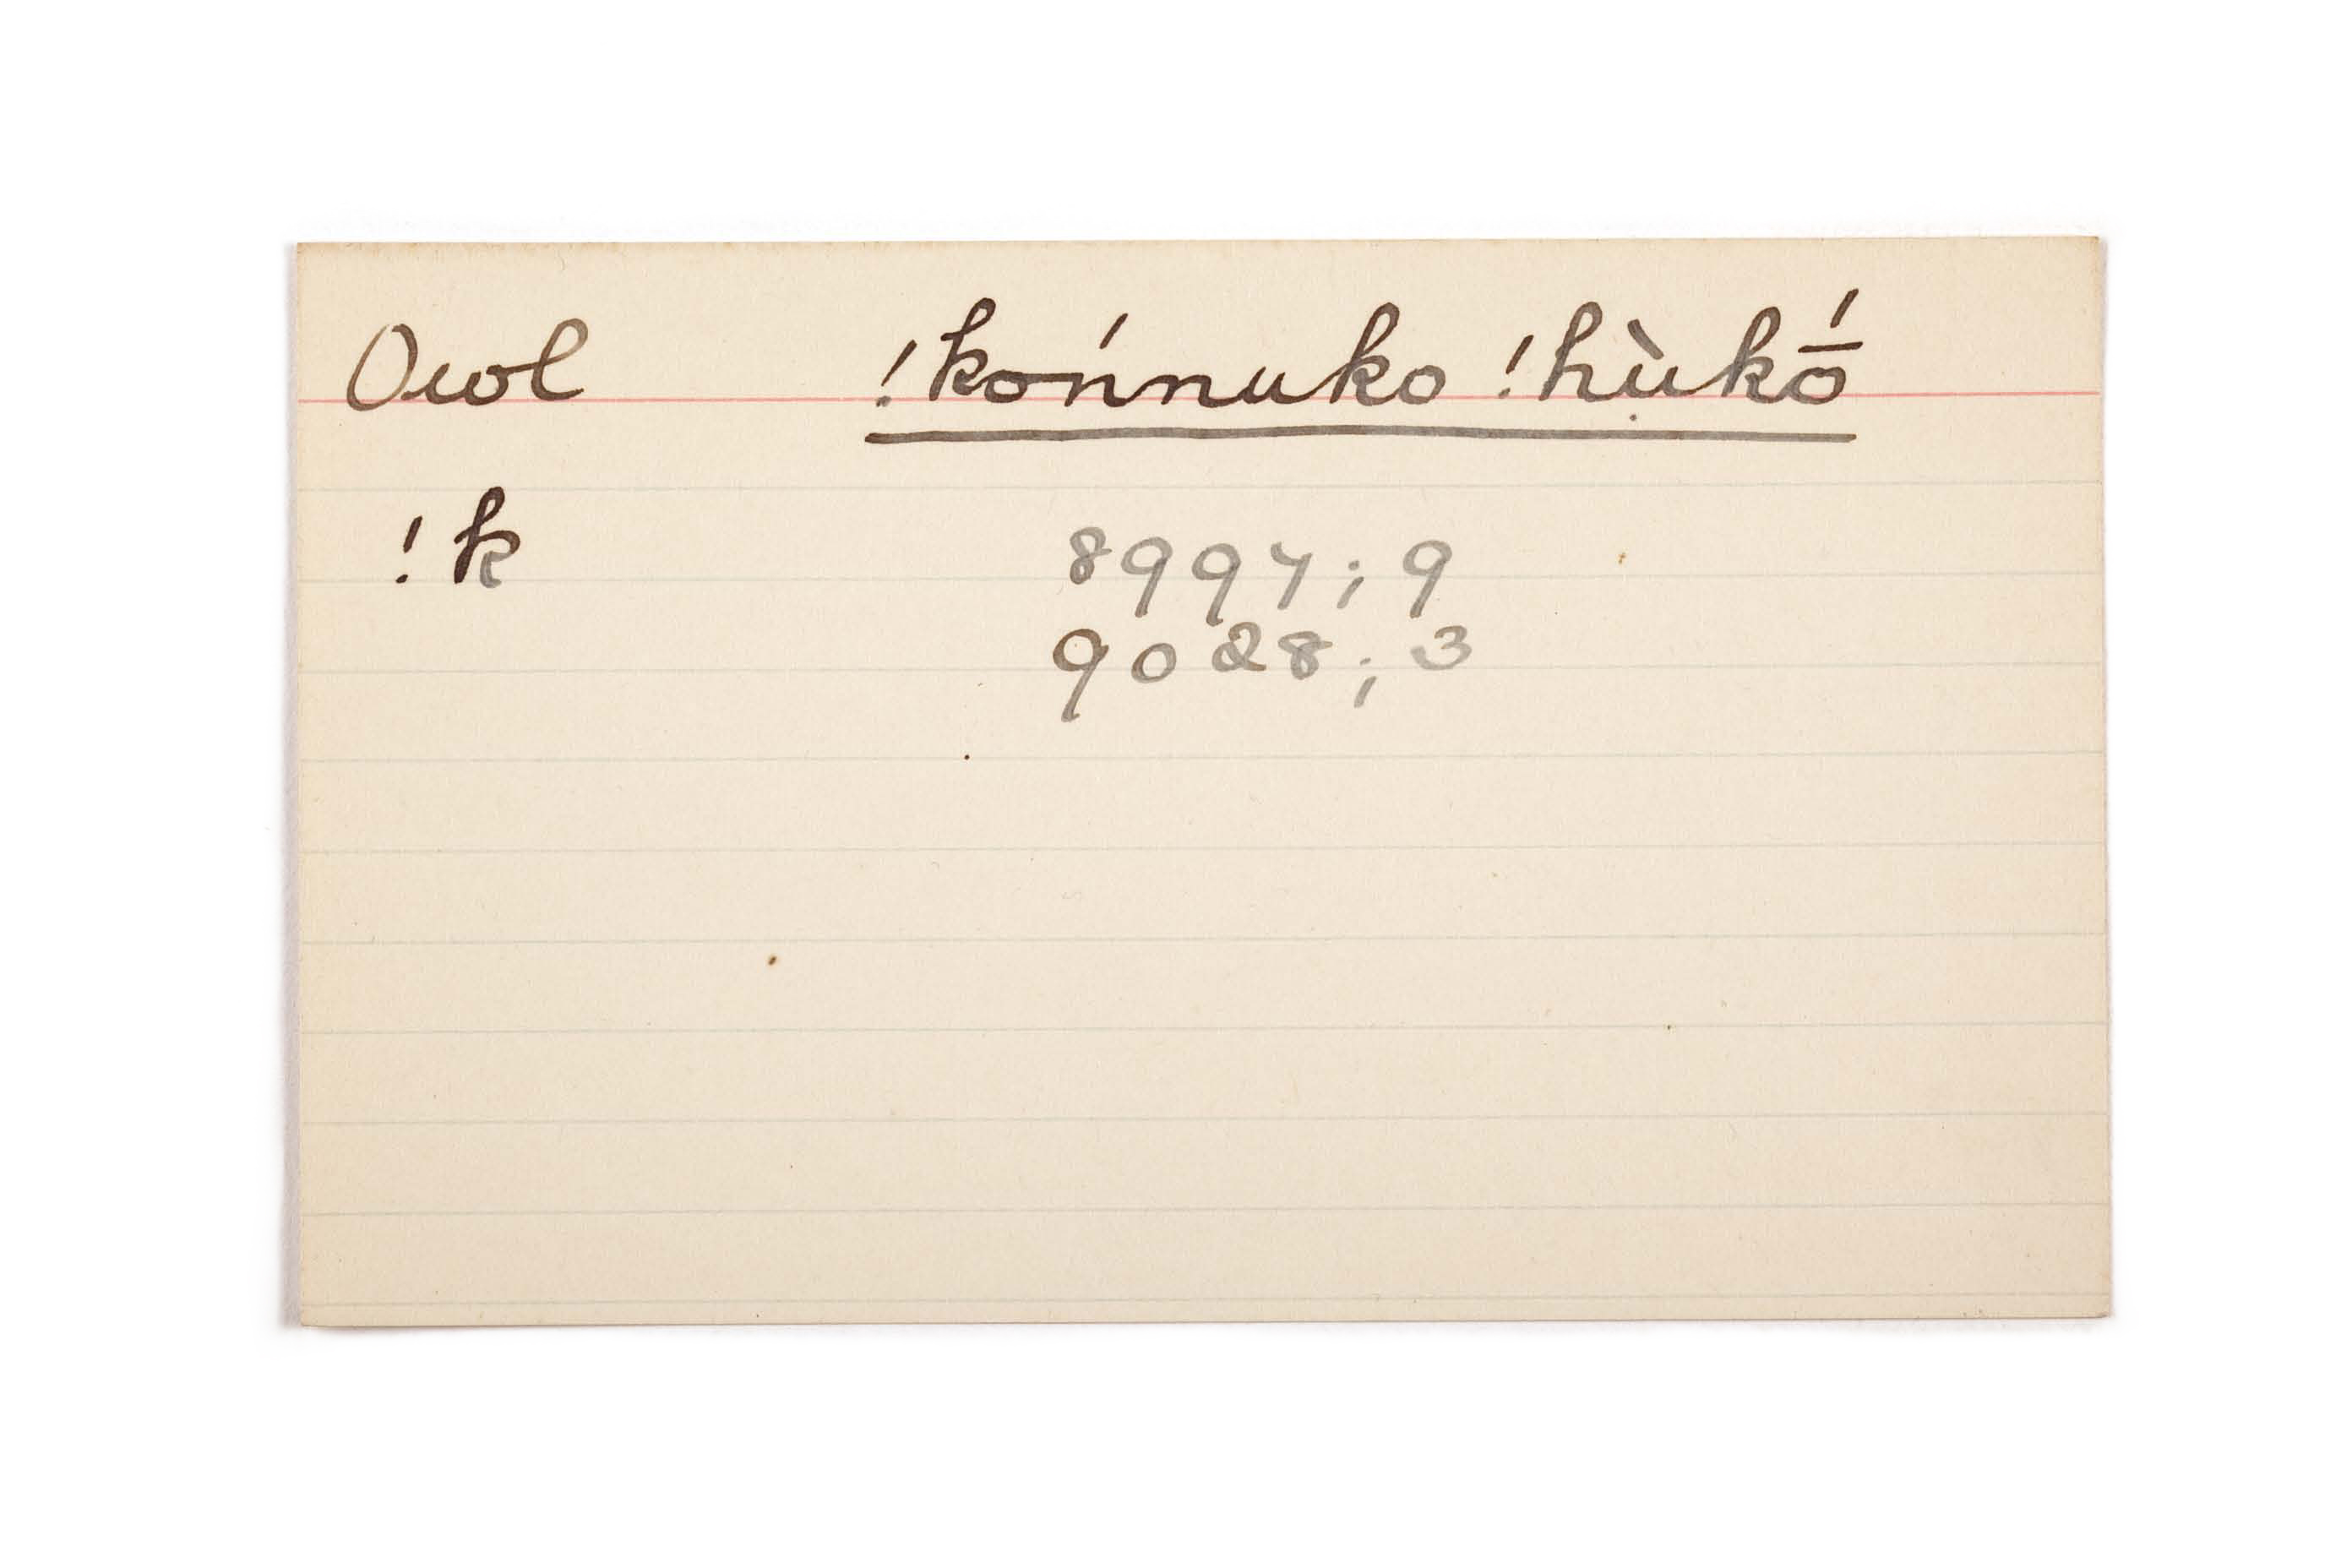 Owl !końnuko !hùkṓ
!k 8997; 9
9028; 3